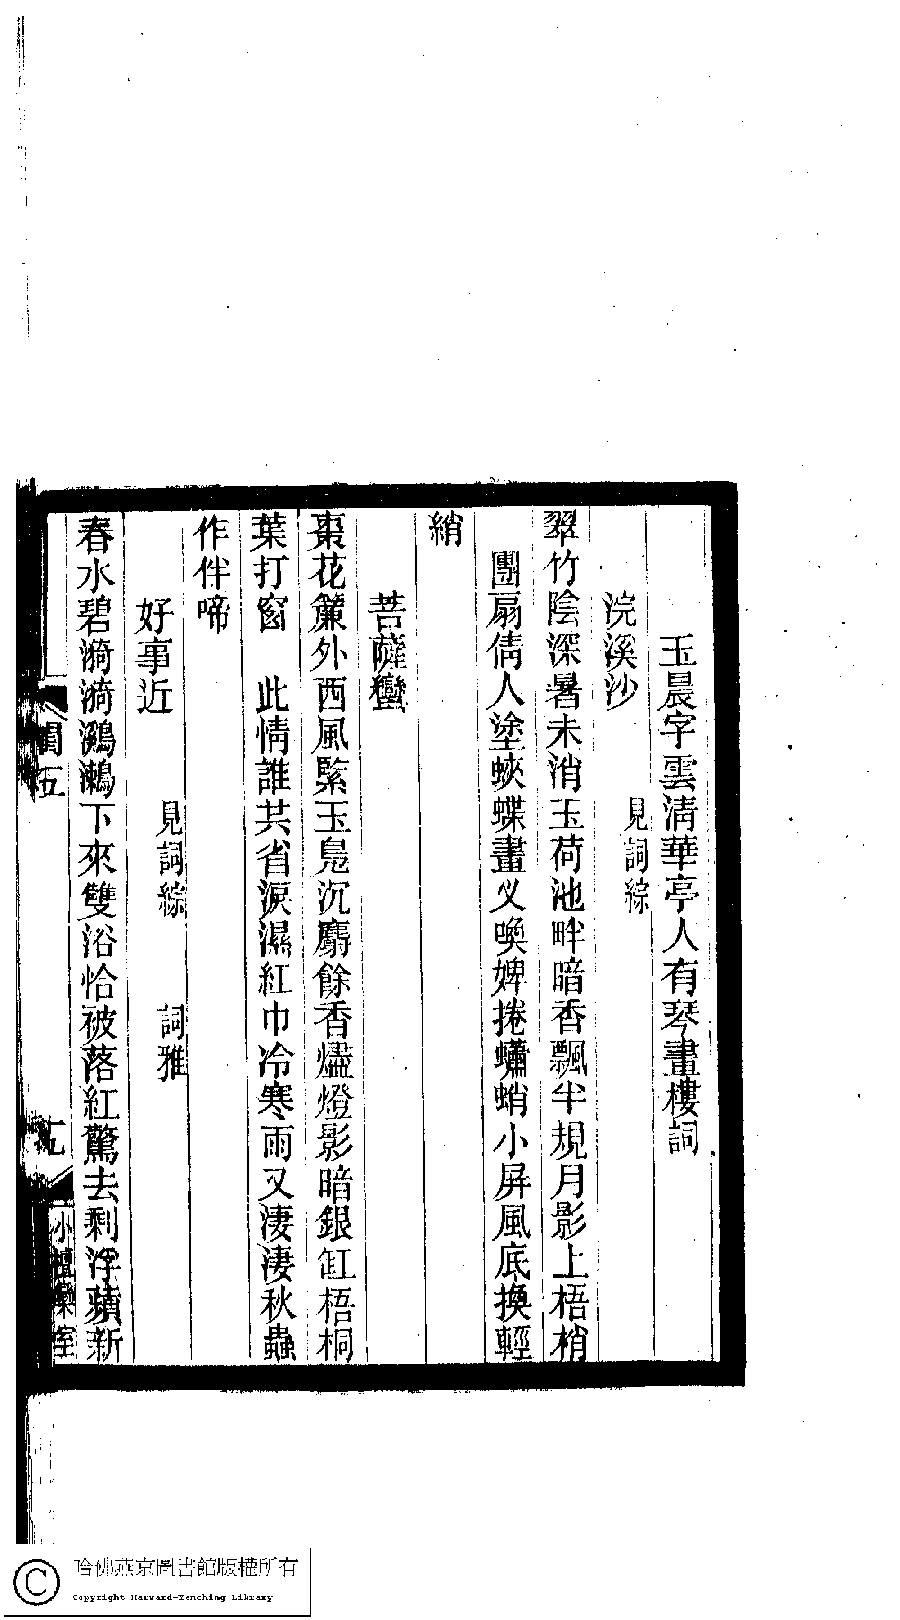 玉晨字雲淸華亭人有琴畫樓詞
浣溪沙　見詞綜
翠竹陰深暑未消玉荷池畔暗香飄半規月影上梧梢
團扇倩人塗蛺蝶畫乂喚婢捲蠨蛸小屏風底換輕
綃
菩薩蠻
棗花簾外西風緊玉鳧沉麝餘香燼燈影暗銀缸梧桐
葉打窗　此情誰共省淚濕紅巾冷寒雨又淒淒秋蟲
作伴啼
好事近　見詞綜　詞雅
春水碧漪漪鸂鶒下來雙浴恰被落紅驚去剩浮蘋新
閏五
五
小檀欒室
哈佛燕京圖書館版權所有
Copyright Harvard-Yenching Library